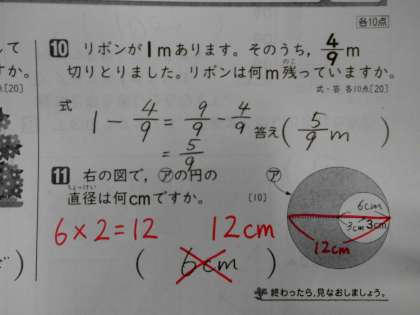 各10点
10 リボンが1mあります。そのうち，4/9m
切りとりました。リボンは何m残っていますか。
のこ
式・答 各10点[20]
式
1 - 4/9 = 9/9 - 4/9
= 5/9
答え( 5/9 m )
して
か。
[20]
11 右の図で，㋐の円の
ちょっけい
直径は何cmですか。
[10]
㋐
6×2=12 12cm
( 6cm )
6cm
3cm 3cm
12cm
ど)
終わったら，見なおしましょう。